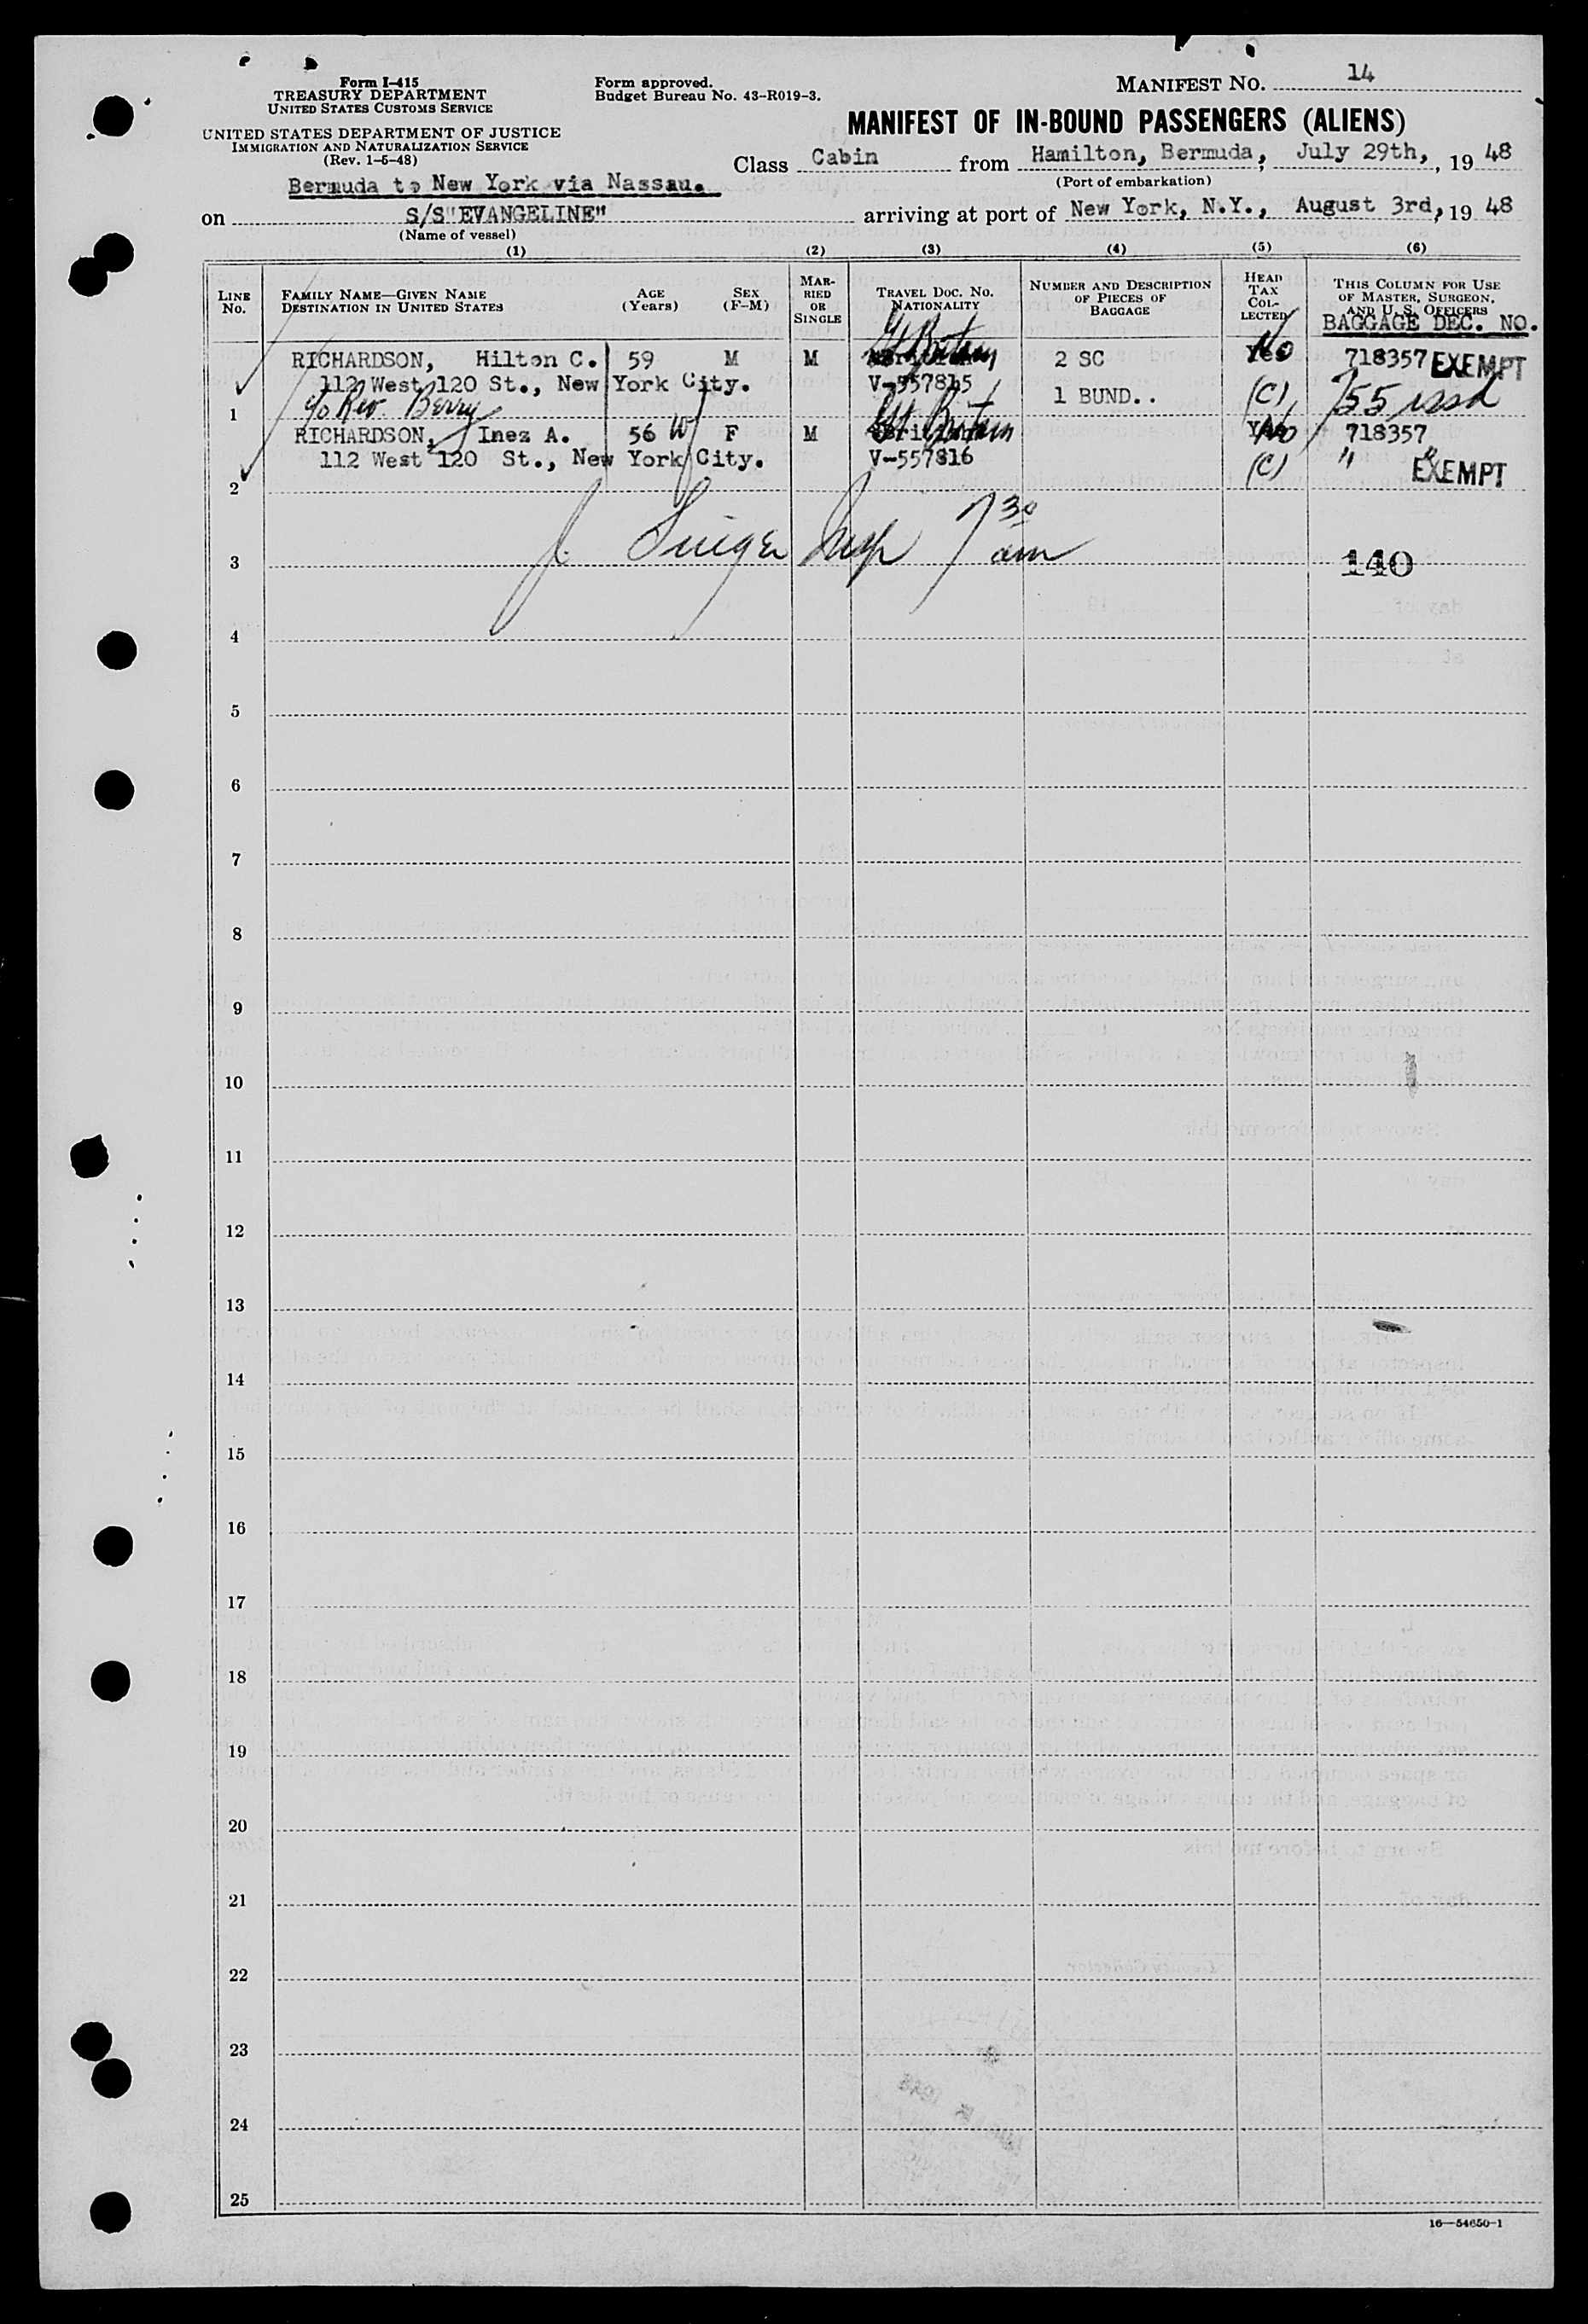 Form I-415
TREASURY DEPARTMENT
UNITED STATES CUSTOMS SERVICE
UNITED STATES DEPARTMENT OF JUSTICE
IMMIGRATION AND NATURALIZATION SERVICE
(Rev. 1-5-48)
Form approved.
Budget Bureau No. 43-R019-3.
MANIFEST NO. 14
MANIFEST OF IN-BOUND PASSENGERS (ALIENS)
Class Cabin from Hamilton, Bermuda, July 29th, , 19 48
(Port of embarkation)
Bermuda to New York via Nassau.
on S/S"EVANGELINE" arriving at port of New York, N.Y., August 3rd, 19 48
(Name of vessel)
(1) (2) (3) (4) (5) (6)
LINE No.
FAMILY NAME—GIVEN NAME
DESTINATION IN UNITED STATES
AGE
(Years)
SEX
(F-M)
MAR-
RIED
OR
SINGLE
TRAVEL DOC. NO.
NATIONALITY
NUMBER AND DESCRIPTION
OF PIECES OF
BAGGAGE
HEAD
TAX
COL-
LECTED
THIS COLUMN FOR USE
OF MASTER, SURGEON,
AND U. S. OFFICERS
BAGGAGE DEC. NO.
RICHARDSON, Hilton C. 59 M M Gt Britain 2 SC No 718357 EXEMPT
112 West 120 St., New York City. V-557815 1 BUND.. (C)
1 c/o Rev. Berry
RICHARDSON, Inez A. 56 W F M Gt Britain No 718357
112 West 120 St., New York City. V-557816 (C) " " EXEMPT
2
J. Singer Insp 7 30 am
3 140
4
5
6
7
8
9
10
11
12
13
14
15
16
17
18
19
20
21
22
23
24
25
16—54650-1